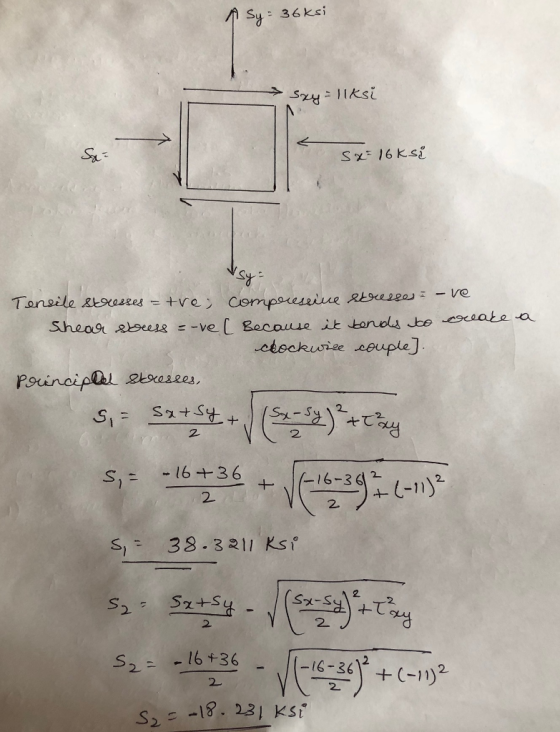 Sy = 36Ksi
Sxy = 11Ksi
Sx =
Sx = 16Ksi
Sy =
Tensile stresses = +ve ; Compressive stresses = -ve
Shear stress = -ve [ Because it tends to create a
clockwise couple].
Principal stresses,
S1 = Sx+Sy/2 + √((Sx-Sy/2)² + τ²xy)
S1 = -16+36/2 + √((-16-36/2)² + (-11)²
S1 = 38.3211 Ksi
S2 = Sx+Sy/2 - √((Sx-Sy/2)² + τ²xy
S2 = -16+36/2 - √((-16-36/2)² + (-11)²
S2 = -18.231 Ksi